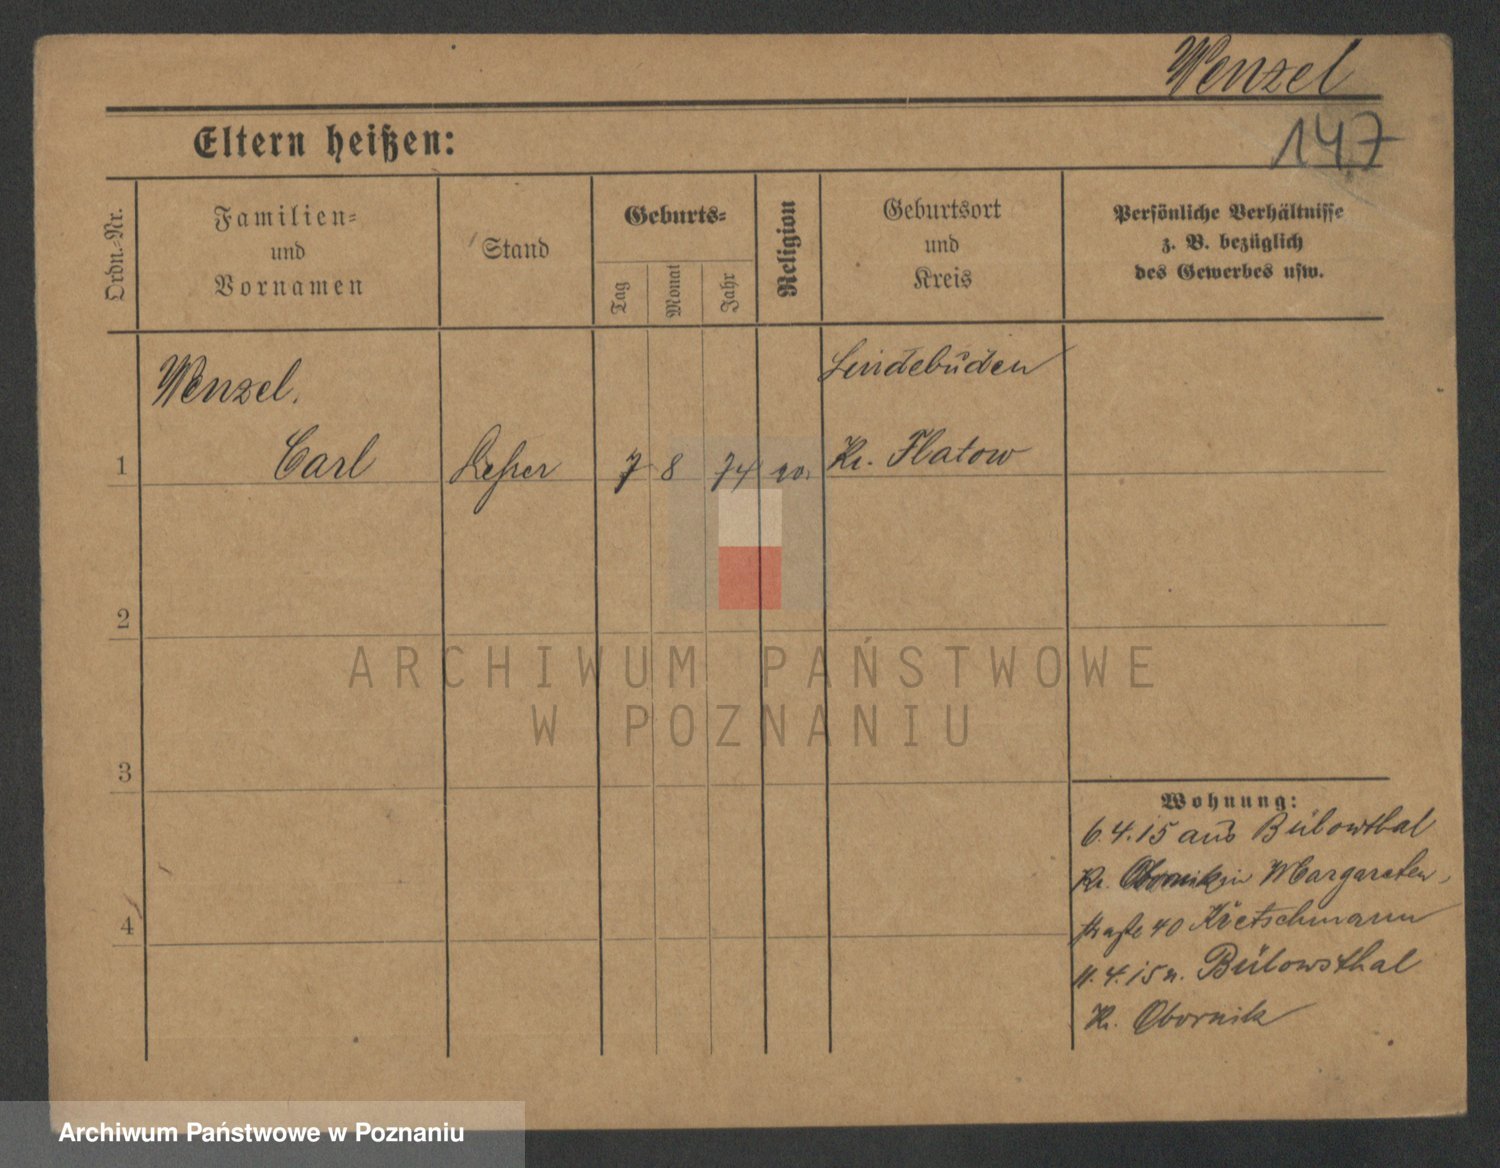 Wenzel
147
Eltern heißen:
Ordn.-Nr.
Familien-
und
Vornamen
Stand
Geburts-
Tag
Monat
Jahr
Religion
Geburtsort
und
Kreis
Persönliche Verhältnisse
z. B. bezüglich
des Gewerbes usw.
Wenzel.
Lindebuden
1
Carl
7 8 74
Kr. Flatow
2
ARCHIWUM PAŃSTWOWE
W POZNANIU
3
Wohnung:
6.4.15 aus Bülowthal
Kr. Obornik in Margareten-
4
straße 40 Kretschmann
11.4.15 n. Bülowsthal
Kr. Obornik
Archiwum Państwowe w Poznaniu